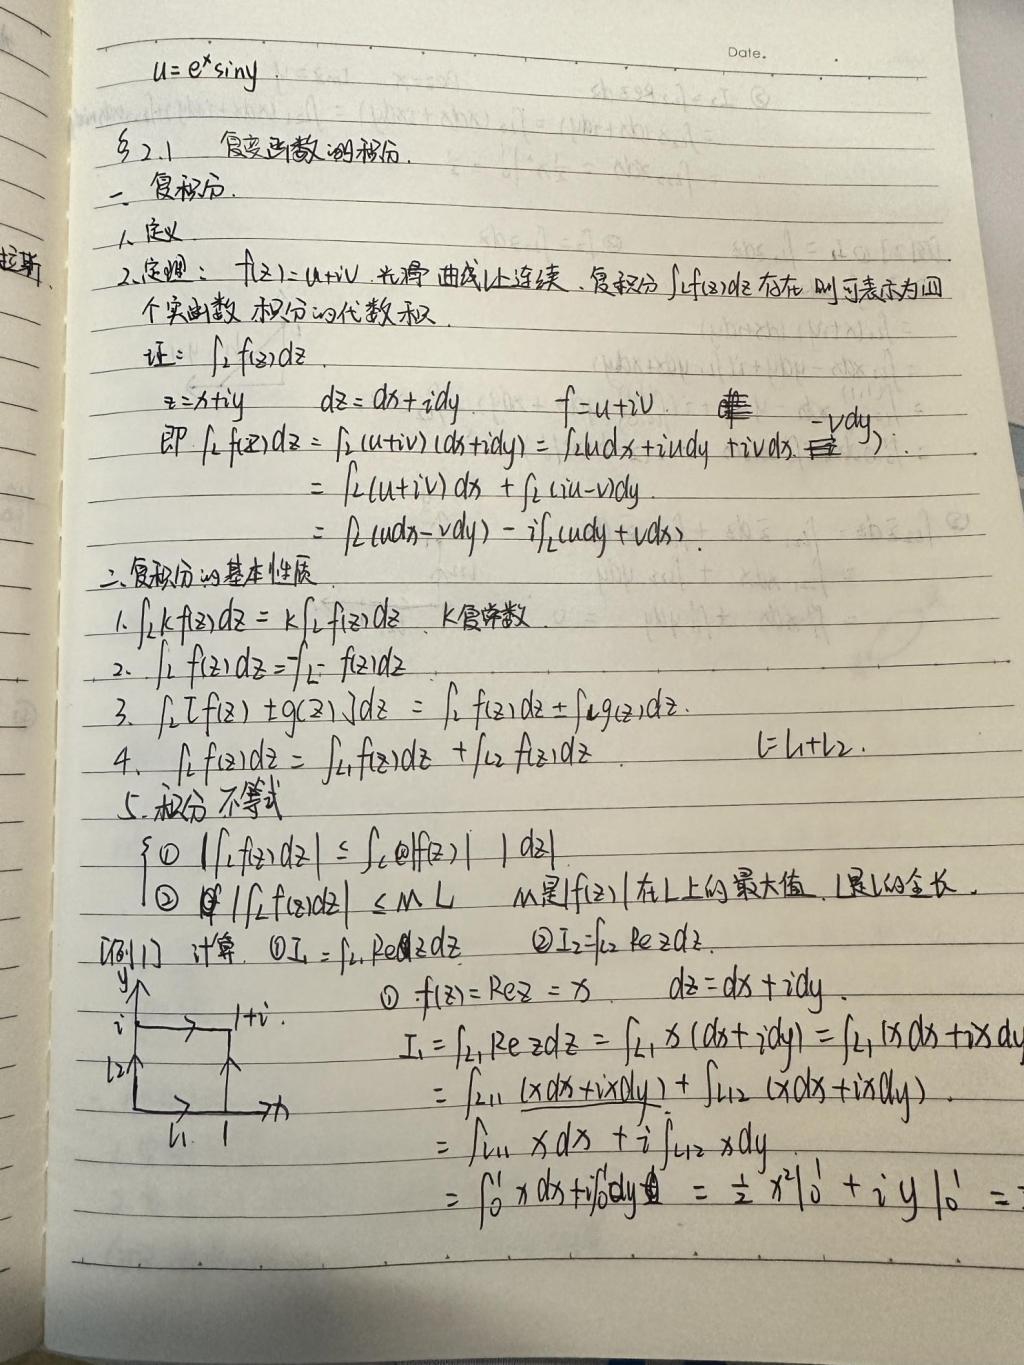 Date.
u=eˣsiny.
§2.1 复变函数的积分.
一、复积分.
1、定义
拉斯
2、定理: f(z)=u+iv 光滑 曲线L上连续、复积分 ∫_L f(z)dz 存在 则可表示为四
个实函数 积分的代数和.
证: ∫_L f(z)dz.
z=x+iy dz=dx+idy. f=u+iv.
即 ∫_L f(z)dz = ∫_L(u+iv)(dx+idy) = ∫_L(udx+iudy+ivdx -vdy).
= ∫_L(u+iv)dx + ∫_L(iu-v)dy.
= ∫_L(udx-vdy) - i∫_L(udy+vdx).
二、复积分的基本性质.
1. ∫_L kf(z)dz = k∫_L f(z)dz 、K复常数.
2. ∫_L f(z)dz = -∫_L- f(z)dz.
3. ∫_L[f(z)±g(z)]dz = ∫_L f(z)dz ± ∫_L g(z)dz.
4、∫_L f(z)dz = ∫_L₁ f(z)dz + ∫_L₂ f(z)dz. L=L₁+L₂.
5.积分不等式
{① |∫_L f(z)dz| ≤ ∫_L |f(z)| |dz|
② |∫_L f(z)dz| ≤ M L M是|f(z)|在L上的最大值、L是L的全长.
[例1] 计算. ①I₁=∫_L₁ Re z dz ②I₂=∫_L₂ Re z dz.
y ① f(z)=Re z = x. dz=dx+idy.
i 1+i. I₁=∫_L₁ Re z dz = ∫_L₁ x(dx+idy) = ∫_L₁ (xdx+ixdy
L₂ = ∫_L₁₁ (xdx+ixdy) + ∫_L₁₂ (xdx+ixdy).
L₁ 1 x = ∫_L₁₁ xdx + i∫_L₁₂ xdy
= ∫₀¹ xdx+i∫₀¹dy = ½ x²|₀¹ + i y|₀¹ =